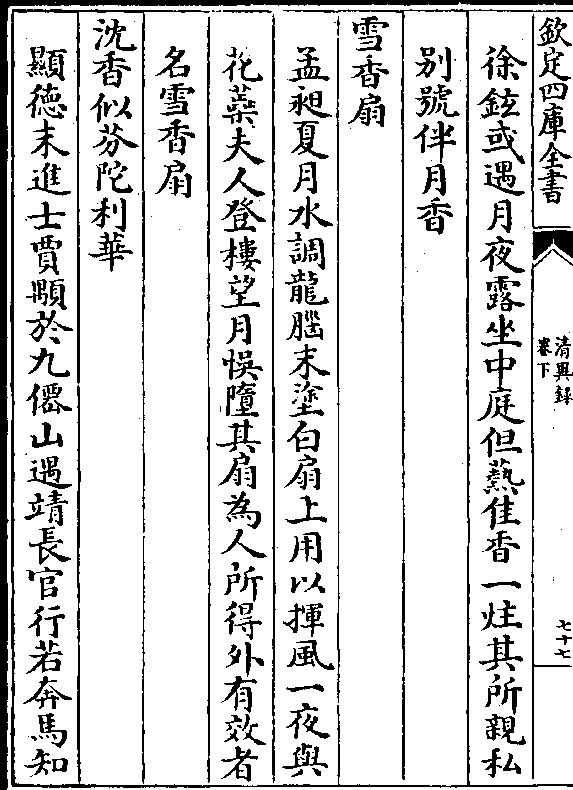 欽定四庫全書
清異錄
卷下
七十七
徐鉉或遇月夜露坐中庭但爇佳香一炷其所親私
别號伴月香
雪香扇
孟昶夏月水調龍腦末塗白扇上用以揮風一夜與
花蘂夫人登樓望月悞墮其扇為人所得外有效者
名雪香扇
沈香似芬陀利華
顯德末進士賈顒於九僊山遇靖長官行若奔馬知